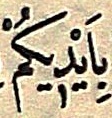 بِاَيْدٖيكُمْ